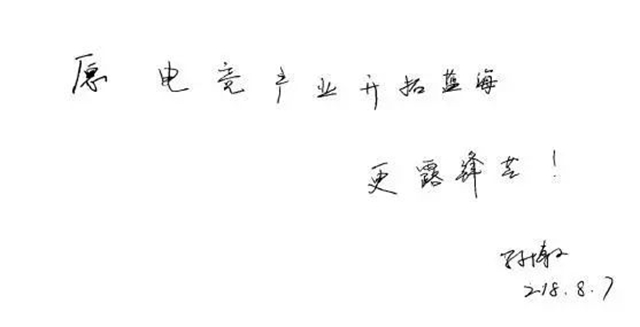 愿电竞产业开拓蓝海
更露锋芒!
2018.8.7